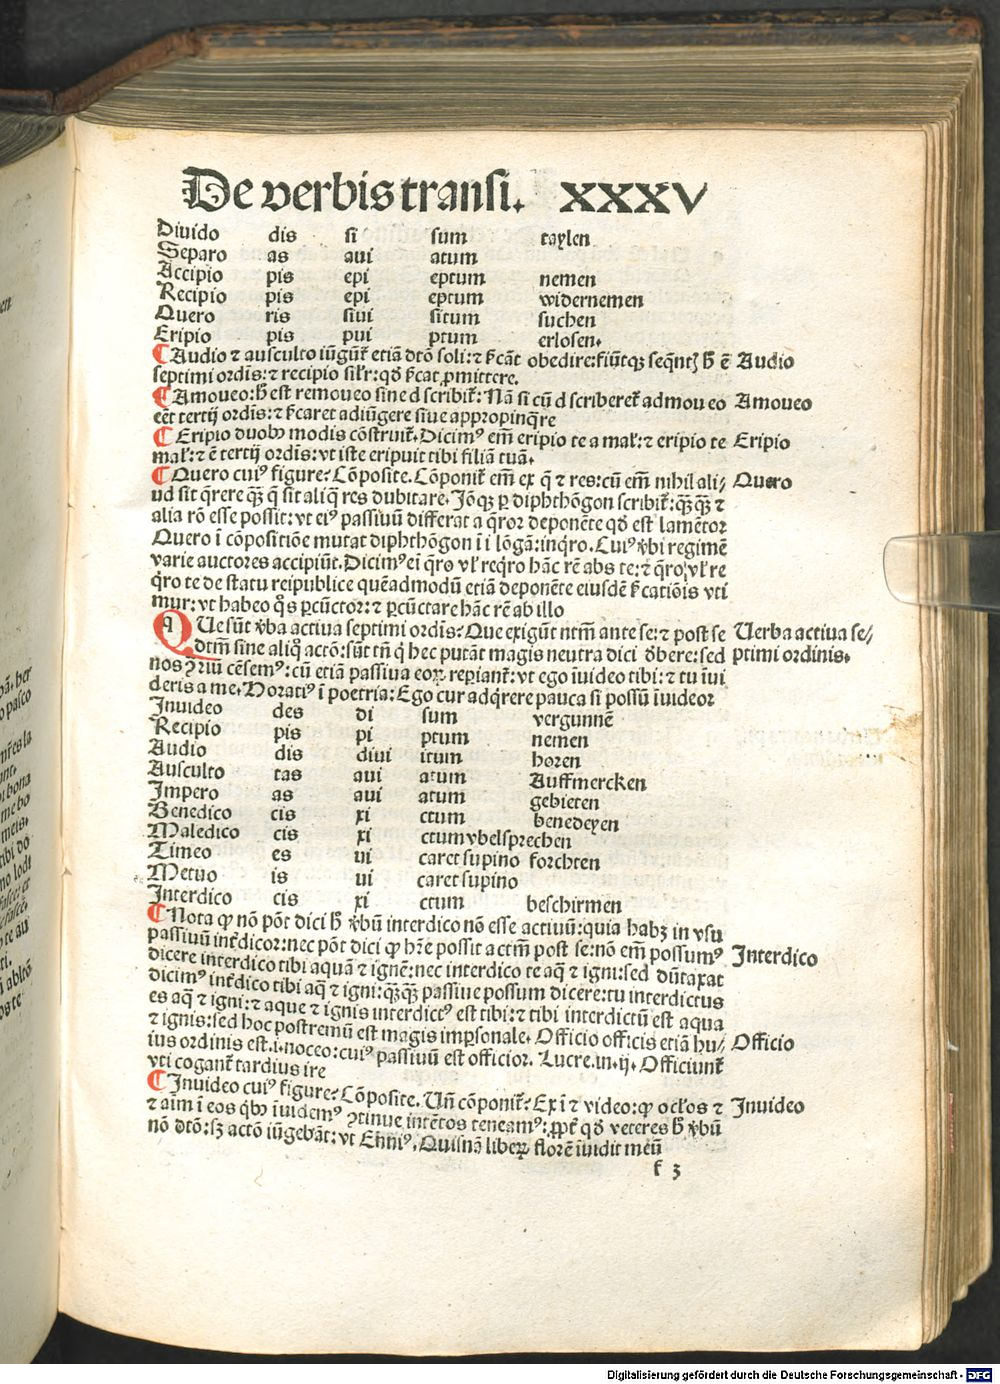 De verbis transi. XXXV
Diuido dis si sum taylen
Separo as aui atum
Accipio pis epi eptum nemen
Recipio pis epi eptum widernemen
Quero ris siui situm suchen
Eripio pis pui ptum erlosen.
Audio ⁊ ausculto iũgũt᷑ etiã dtõ soli: ⁊ ſ᷑cãt obedire: fiũtqꝫ seqñtꝭ h̃ ẽ Audio
septimi ordĩs: ⁊ recipio sil᷑r: qđ ſ᷑cat ꝓmittere.
Amoueo: h̃ est remoueo sine d scribit᷑: Nã si cũ d scriberet᷑ admoueo Amoueo
eẽt tertij ordĩs: ⁊ ſ᷑caret adiũgere siue appropinq̃re
Eripio duobꝰ modis cõstruit᷑. Dicimꝰ em̃ eripio te a mal᷑: ⁊ eripio te Eripio
mal᷑: ⁊ ẽ tertij ordĩs: vt iste eripuit tibi filiã tuã.
Quero cuiꝰ figure? Cõposite. Cõponit᷑ em̃ ex q̃ ⁊ res: cũ em̃ nihil ali⸗ Quero
ud sit q̃rere qꝫ̃ q̃ sit aliq̃ res dubitare. Jõqꝫ ꝑ diphthõgon scribit᷑: qꝫ̃qꝫ̃ ⁊
alia rõ esse possit: vt eiꝰ passiuũ differat a q̃ror deponẽte qđ est lamẽtor
Quero ĩ cõpositiõe mutat diphthõgon ĩ i lõgã: inq̃ro. Cuiꝰ v̾bi regimẽ
varie auctores accipiũt. Dicimꝰ ei q̃ro vl᷑ req̃ro hãc rẽ abs te: ⁊ q̃ro vl᷑ re
q̃ro te de statu reipublice quẽadmodũ etiã deponẽte eiusdẽ ſ᷑catiõis vti
mur: vt habeo q̃s ꝑcũctor: ⁊ ꝑcũctare hãc rẽ ab illo
QUe sũt v̾ba actiua septimi ordĩs? Que exigũt ntm̃ ante se: ⁊ post se Uerba actiua se⸗
dtm̃ sine aliq̊ actõ: sũt tñ q̃ hec putãt magis neutra dici d̾bere: sed ptimi ordinis.
nos ꝯ̾riũ cẽsemꝰ: cũ etiã passiua eoꝝ reꝑiant᷑: vt ego ĩuideo tibi: ⁊ tu ĩui
deris a me. Horatiꝰ ĩ poetria: Ego cur adq̃rere pauca si possũ ĩuideor
Inuideo des di sum vergunnẽ
Recipio pis pi ptum nemen
Audio dis diui itum horen
Ausculto tas aui atum Auffmercken
Impero as aui atum gebieten
Benedico cis xi ctum benedeyen
Maledico cis xi ctum vbelsprechen
Timeo es ui caret supino forchten
Metuo is ui caret supino
Interdico cis xi ctum beschirmen
Nota ꝙ nõ põt dici h̃ v̾bũ interdico nõ esse actiuũ: quia habꝫ in vsu
passiuũ int̾dicor: nec põt dici ꝙ hr̃e possit actm̃ post se: nõ em̃ possumꝰ Interdico
dicere interdico tibi aquã ⁊ ignẽ: nec interdico te aq̃ ⁊ igni: sed dũtaxat
dicimꝰ int̾dico tibi aq̃ ⁊ igni: qꝫ̃qꝫ̃ passiue possum dicere: tu interdictus
es aq̃ ⁊ igni: ⁊ aque ⁊ ignis interdictꝰ est tibi: ⁊ tibi interdictũ est aqua
⁊ ignis: sed hoc postremũ est magis imꝑsonale. Officio officis etiã hu⸗ Officio
ius ordinis est .i. noceo: cuiꝰ passiuũ est officior. Lucre. in .ij. Officiunt᷑
vti cogant᷑ tardius ire
Inuideo cuiꝰ figure? Cõposite. Uñ cõponit᷑? Ex ĩ ⁊ video: ꝙ oc̃los ⁊ Inuideo
⁊ aĩm ĩ eos qb̾ꝰ ĩuidemꝰ ꝯtinue intẽtos teneamꝰ: ꝓpt̾ qđ veteres h̃ v̾bũ
nõ dtõ: sꝫ actõ iũgebãt: vt Enniꝰ. Quisnã liberꝝ florẽ ĩuidit meũ
f 3
Digitalisierung gefördert durch die Deutsche Forschungsgemeinschaft - DFG